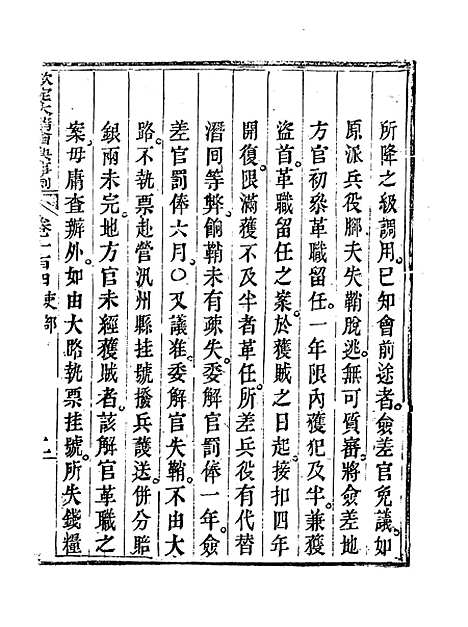 所降之級調用。已知會前途者。僉差官免議。如
原派兵役腳夫失鞘脫逃。無可質審。將僉差地
方官初參革職留任。一年限內獲犯及半。兼獲
盜首。革職留任之案。於獲賊之日起。接扣四年
開復。限滿獲不及半者革任。所差兵役有代替
潛回等弊。餉鞘未有疎失。委解官罰俸一年。僉
差官罰俸六月。○又議准。委解官失鞘。不由大
路。不執票赴營汛州縣挂號撥兵護送。併分賠
銀兩未完。地方官未經獲賊者。該解官革職之
案。毋庸查辦外。如由大路執票挂號。所失錢糧
欽定大清會典事例 卷一百四 吏部